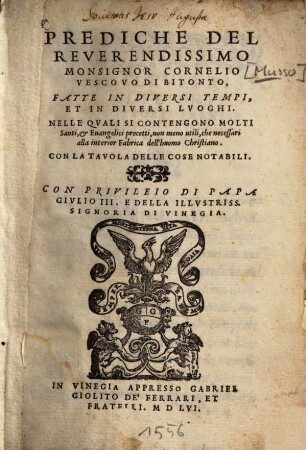 Societatis Jesu Augustae
PREDICHE DEL
REVERENDISSIMO
MONSIGNOR CORNELIO
VESCOVO DI BITONTO,
[Musso]
FATTE IN DIVERSI TEMPI,
ET IN DIVERSI LVOGHI.
NELLE QVALI SI CONTENGONO MOLTI
Santi, & Euangelici precetti, non meno utili, che necessari
alla interior Fabrica dell'huomo Christiano.
CON LA TAVOLA DELLE COSE NOTABILI.
CON PRIVILEIO DI PAPA
GIVLIO III. E DELLA ILLVSTRISS.
SIGNORIA DI VINEGIA.
G G
F
IN VINEGIA APPRESSO GABRIEL
GIOLITO DE' FERRARI, ET
FRATELLI. M D LVI.
1556